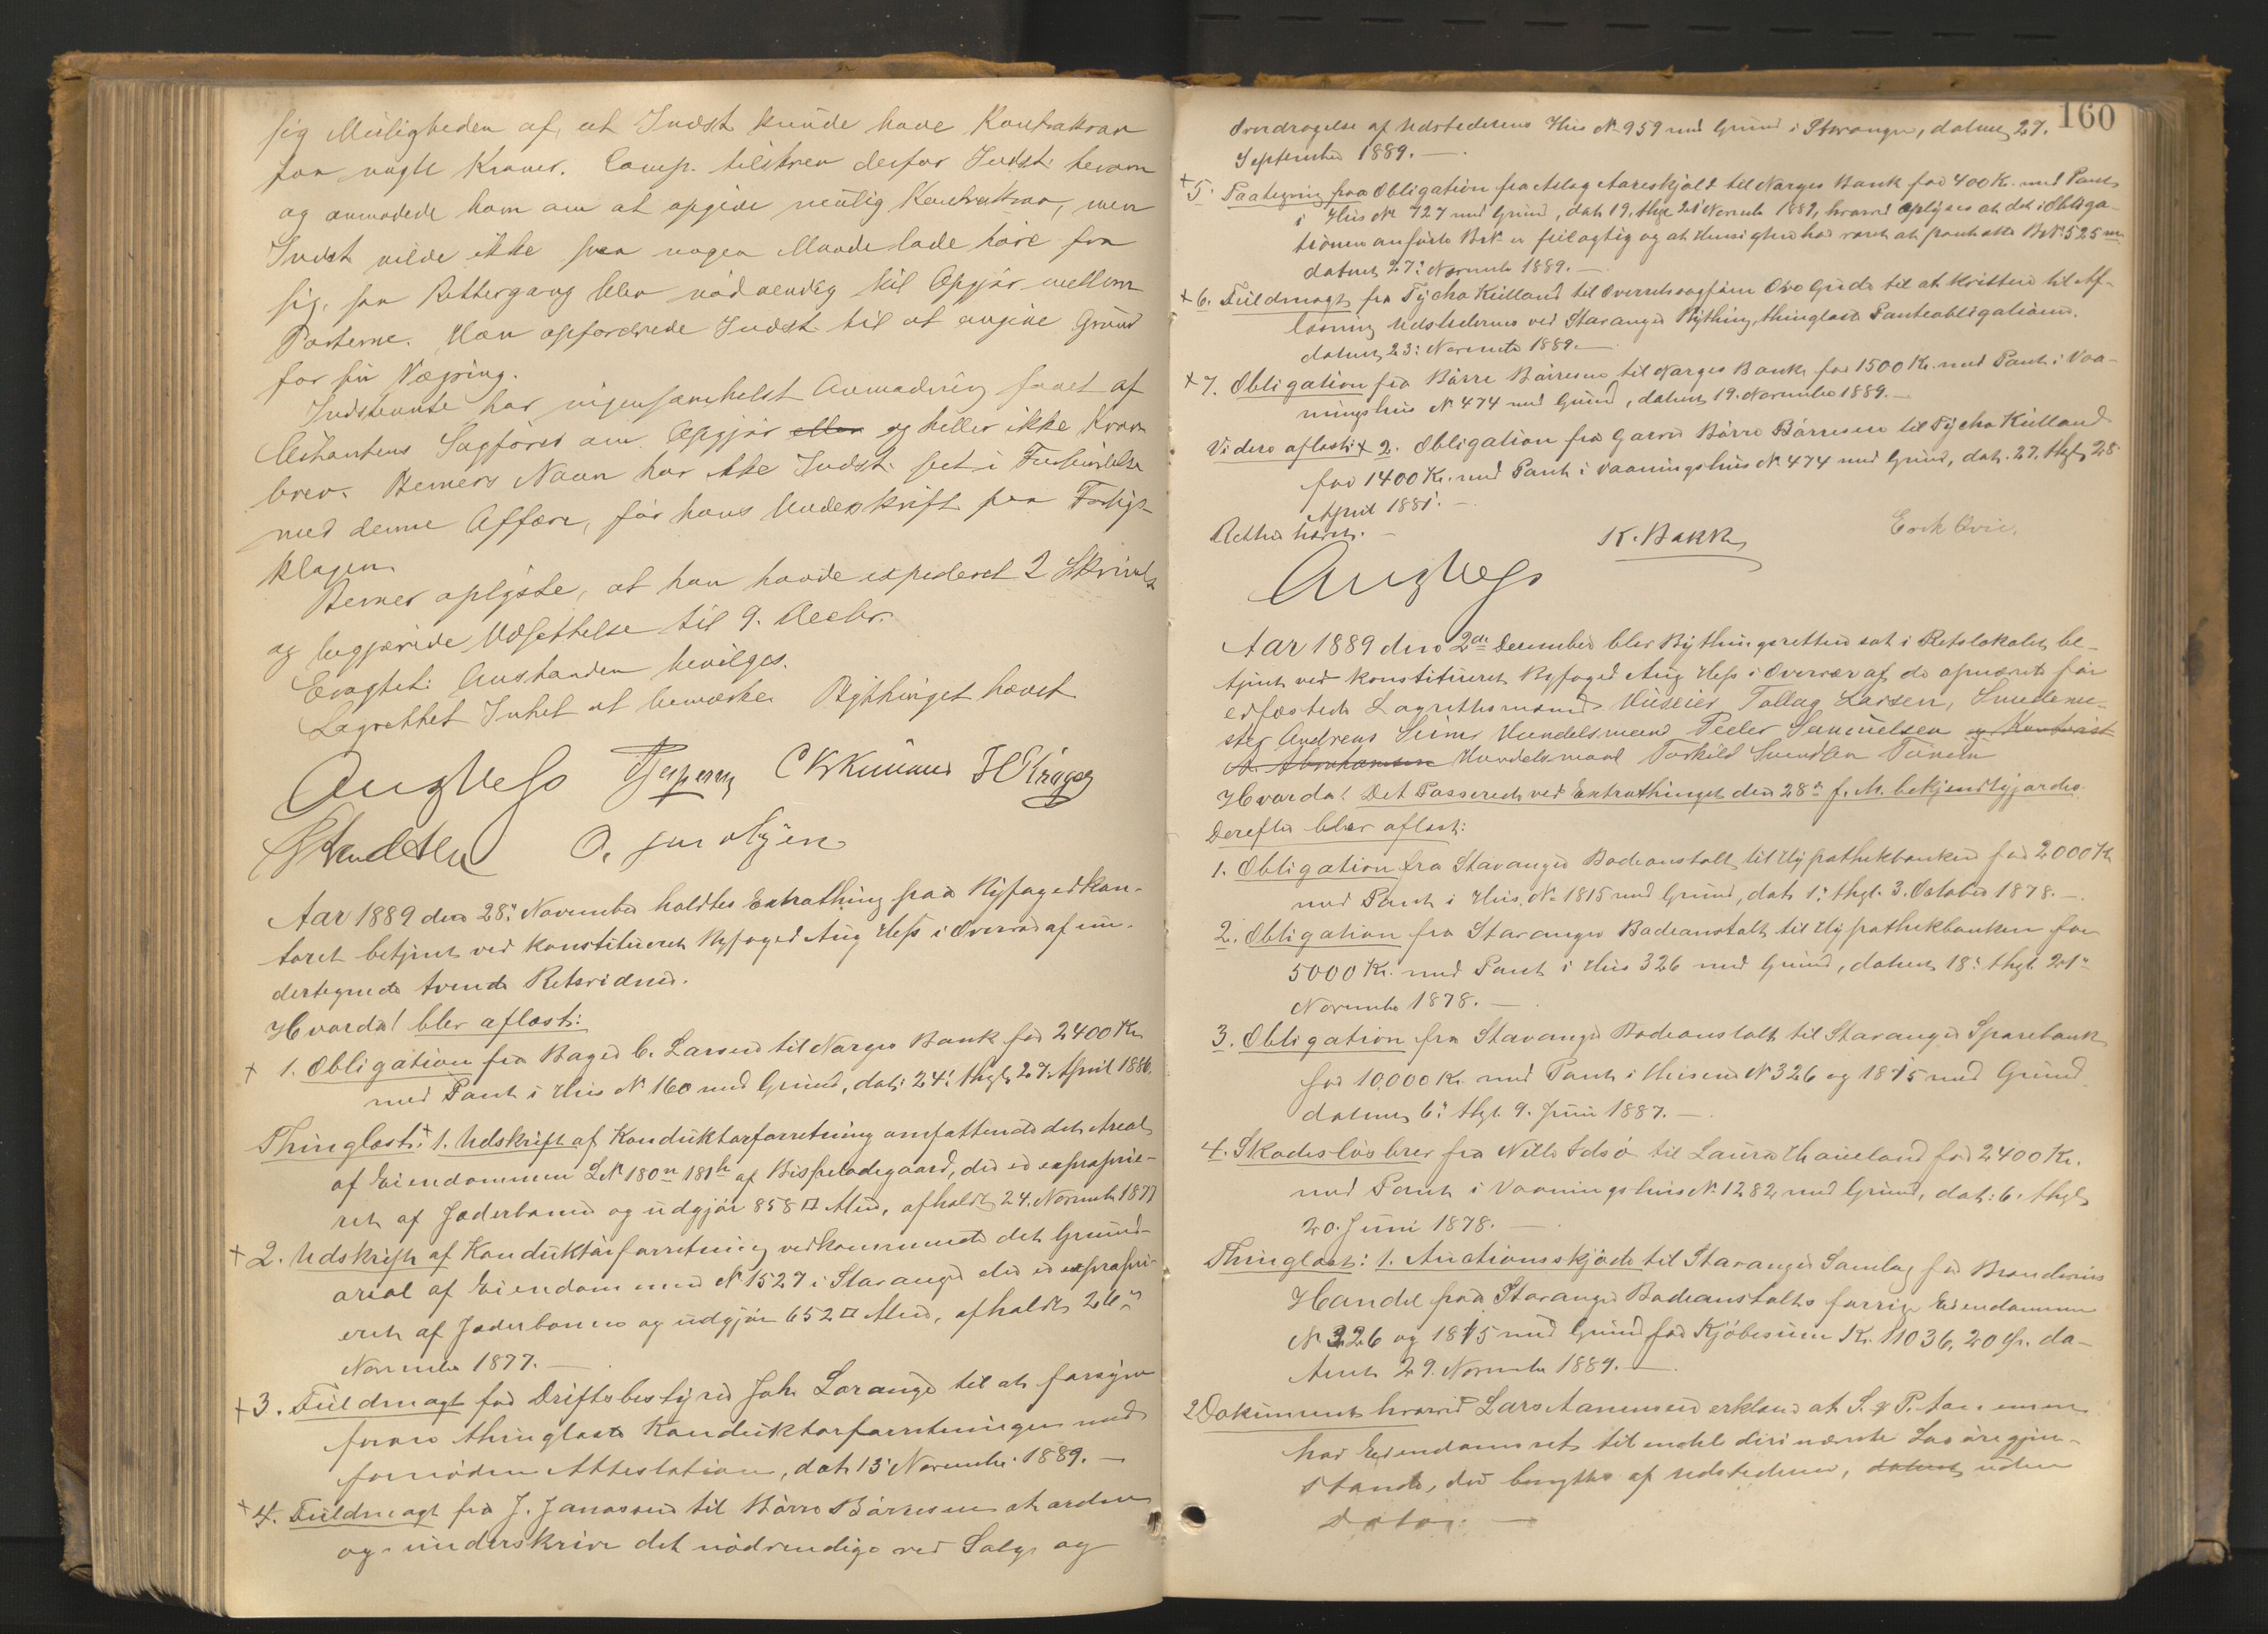 sig Muligheden af, at Indst. kunde have Kontrakrav
paa nogle Kroner. Comp. tilskrev derfor Indst. herom
og anmodede ham om at opgive mulig Kontrakrav, men
Indst vilde ikke paa nogen Maade lade höre fra
sig, saa Rettergang blev nödvendig til Opgjör mellem
Parterne. Han opfordrede Indst. til at angive Grund
for sin Vægring.
Indstevnte har ingensomhelst Anmodning faaet af
Citantens Sagförer om Opgjör eller og heller ikke Krav-
brev. Berners Navn har ikke Indst. set i Forbindelse
med denne Affære, för hans Underskrift paa Forligs-
klagen.
Berner oplyste, at han havde expederet 2 Skrivelser
og begjærede Udsettelse til 9. Decbr.
Eragtet: Anstanden bevilges.
Lagrettet Intet at bemærke. Bythinget hævet
Aug Hess
Aar 1889 den 28: November holdtes Extrathing paa Byfogedkon-
toret betjent ved konstitueret Byfoged Aug Hess i Overvær af un-
dertegnede tvende Retsvidner.
Hvorda! blev aflæst:
+ 1. Obligation fra Bager C. Larsen til Norges Bank for 2400 Kr
med Pant i Hus No 160 med Grund, dat: 24: thgl. 27. April 1886.
Thinglæst: + 1. Udskrift af Konduktörforretning omfattende det Areal
af Eiendommen LNo 180 181 af Bispeladegaard, der er exproprie-
ret af Jæderbanen og udgjör 858 □ Alen, afholdt 24. Novembr 1877
+ 2. Udskrift af Konduktörforretning vedkommende det Grund-
areal af Eiendommen No 1527 i Stavanger der er expropri-
eret af Jæderbanen og udgjör 652 □ Alen, afholdt 26
November 1877. —
+ 3. Fuldmagt for Driftsbestyrer Joh. Lorange til at forsyne
foran thinglæste Konduktörforretninger med
fornöden Attestation, dat. 15 November 1889. —
+ 4. Fuldmagt fra J. Janassen til Börre Börresen at ordne
og underskrive det nödvendige ved Salg og
160
Overdragelse af Udstederens Hus No 959 med Grund i Stavanger, dateret 27.
September 1889. —
+ 5. Paategning paa Obligation fra Aslag Aareskjold til Norges Bank for 400 Kr. med Pant
i Hus No 727 med Grund, dat. 19. thgl 21 Novembr 1889, hvorved oplyses at det i Obliga-
tionen anförte BNo er feilagtig og at Hensigten har været at pantsætte BNo 525
dateret 27: November 1889. —
+ 6. Fuldmagt fra Tycho Kielland til Overretssagförer Ove Gude til at kvittere til Af-
læsning Udstederens ved Stavanger Bything, thinglæste Panteobligationer.
dateret 23: November 1889. —
+ 7. Obligation fra Börre Börresen til Norges Bank for 1500 Kr. med Pant i Vaa-
ningshus No 474 med Grund, dateret 19. November 1889. —
Videre aflæst: + 2. Obligation fra Garver Börre Börresen til Tycho Kielland
for 1400 Kr. med Pant i Vaaningshus No 474 med Grund, dat. 27. thgl. 28
April 1881. —
Retten hævet. —
Aug Hess
K. Bakk
Aar 1889 den 2den December blev Bythingsretten sat i Retslokalet be-
tjent ved konstitueret Byfoged Aug Hess i Overvær af de opnævnte för
edfæstede Lagrettesmænd Huseier Tollag Larsen, Smedeme-
ster Andreas Seim Handelsmand Peder Samuelsen og Kontorist
A. Abrahamsen Handelsmand Torkild Svendsen
Hvorda! Det Passerede ved Extrathinget den 28 f. M. bekjendtgjordes.
Derefter blev aflæst:
1. Obligation fra Stavanger Badeanstalt til Hypothekbanken for 2000 Kr
med Pant i Hus No 1815 med Grund, dat. 1: thgl. 3. October 1878. —
2. Obligation fra Stavanger Badeanstalt til Hypothekbanken for
5000 Kr. med Pant i Hus 326 med Grund, dateret 18: thgl. 21
November 1878. —
3. Obligation fra Stavanger Badeanstalt til Stavanger Sparebank
for 10,000 Kr. med Pant i Husene No 326 og 1815 med Grund
dateret 6: thgl. 9. Juni 1887. —
4. Skadeslösbrev fra Nills Idsö til Laura Haueland for 2400 Kr.
med Pant i Vaaningshus No 1282 med Grund, dat: 6. thgl.
20. Juni 1878. —
Thinglæst: 1. Auctionsskjöde til Stavanger Samlag for Brændevins
Handel paa Stavanger Badeanstalts forrige Eiendomme
No 326 og 1815 med Grund for Kjöbesum Kr. 11036, 20 Ör. da-
teret 29. November 1889. —
2 Dokument hvorved Lars Aanensen erklærer at S. & P.
har Eiendomsret til endel deri nævnte Lösöregjen-
stande, der benyttes af Udstederen, dateret uden
Dato: —